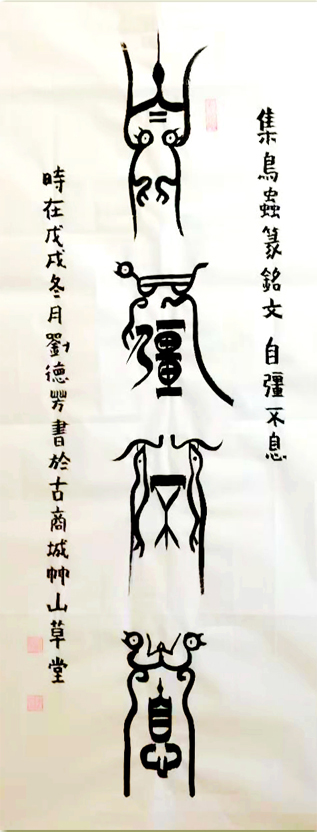 集鳥蟲篆銘文 自彊不息
自彊不息
時在戊戌冬月劉德芳書於古商城艸山草堂